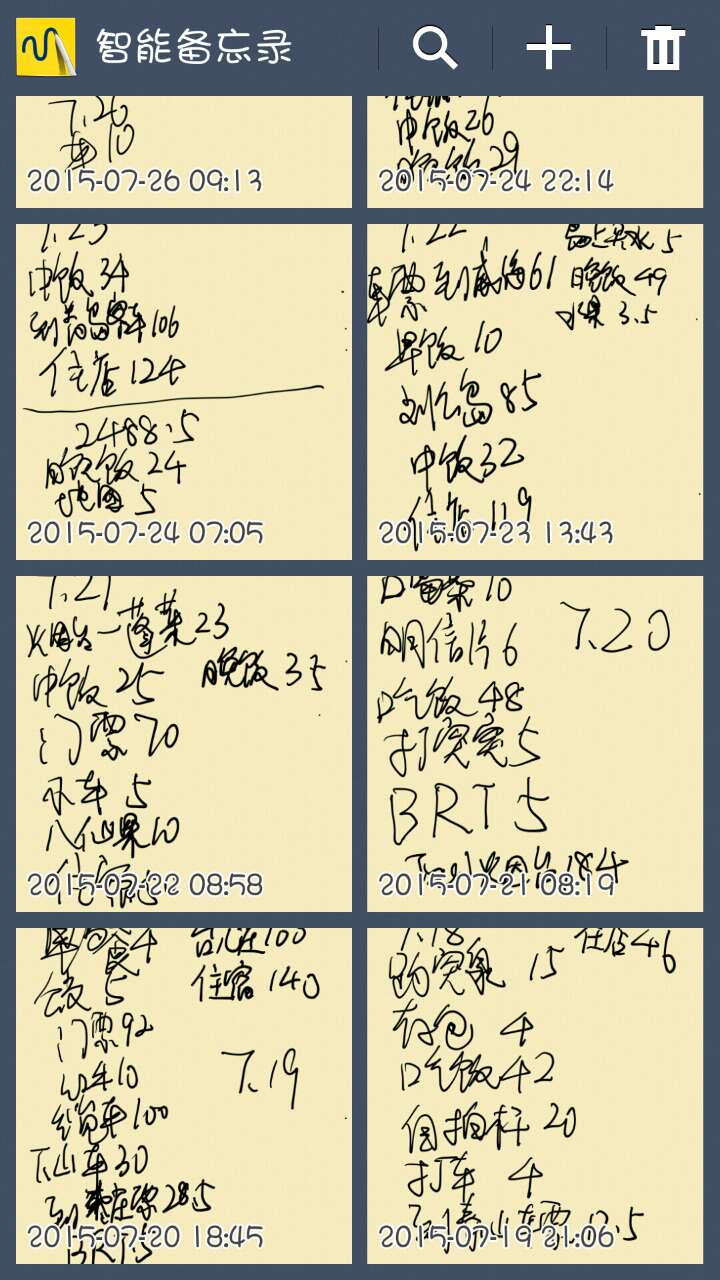 智能备忘录
7.26
车10
2015-07-26 09:13
中饭26
晚饭29
2015-07-24 22:14
7.23
中饭34
到青岛票车106
住店124
2488.5
晚饭24
地图5
2015-07-24 07:05
7.22
岛上买水5
车票到威海61
晚饭49
水果3.5
早饭10
刘公岛85
中饭32
住宿119
2015-07-23 13:43
7.21
烟台-蓬莱23
中饭25
晚饭35
门票70
车5
八仙果10
2015-07-22 08:58
10
明信片6
7.20
吃饭48
打突突5
BRT5
184
2015-07-21 08:19
4
100
饭5
住宿140
门票92
10
7.19
包车100
下山车30
到枣庄票28.5
2015-07-20 18:45
7.18
住店46
趵突泉15
存包4
吃饭42
自拍杆20
打车4
到泰山车票
2015-07-19 21:06